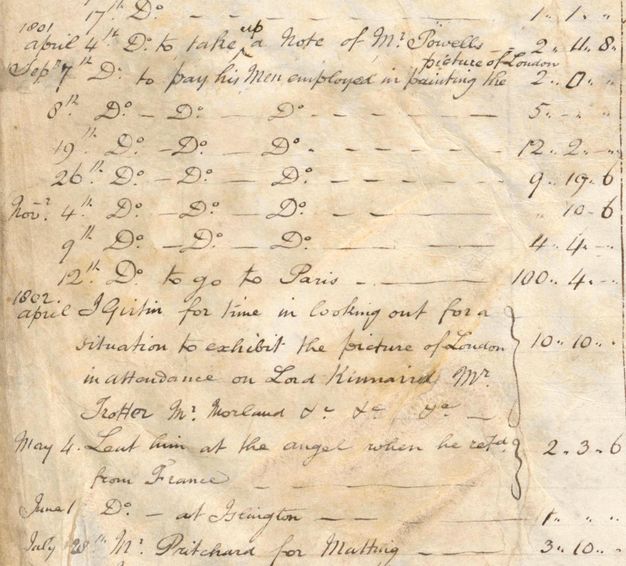 17th Do. 1 „ 1 „ „
1801
april 4th Do. to take up a Note of Mr. Powells 2 „ 11 „ 8 „
picture of London
Sepr. 7th Do. to pay his Men employed in painting the 2 „ 0 „ „
8th Do. – Do. – Do. 5 „ – „
19th Do. – Do. Do. 12 „ 2 „ –
26th Do. – Do. – Do. 9 „ 19 „ 6
Novr. 4th Do. – Do. – Do. „ 10 „ 6
9th Do. – Do. – Do. 4 „ 4 „ –
12th Do. to go to Paris 100 „ 4 „ –
1802.
april J Girtin for time in looking out for a
situation to exhibit the picture of London 10 „ 10 „ „
in attendance on Lord Kinnaird Mr.
Trotter Mr. Morland &c &c &c
May 4. Lent him at the angel when he retd. 2 „ 3 „ 6
from France
June 1 Do. – at Islington 1 „ „ „
July 28th Mr. Pritchard for Matting 3 „ 10 „ „